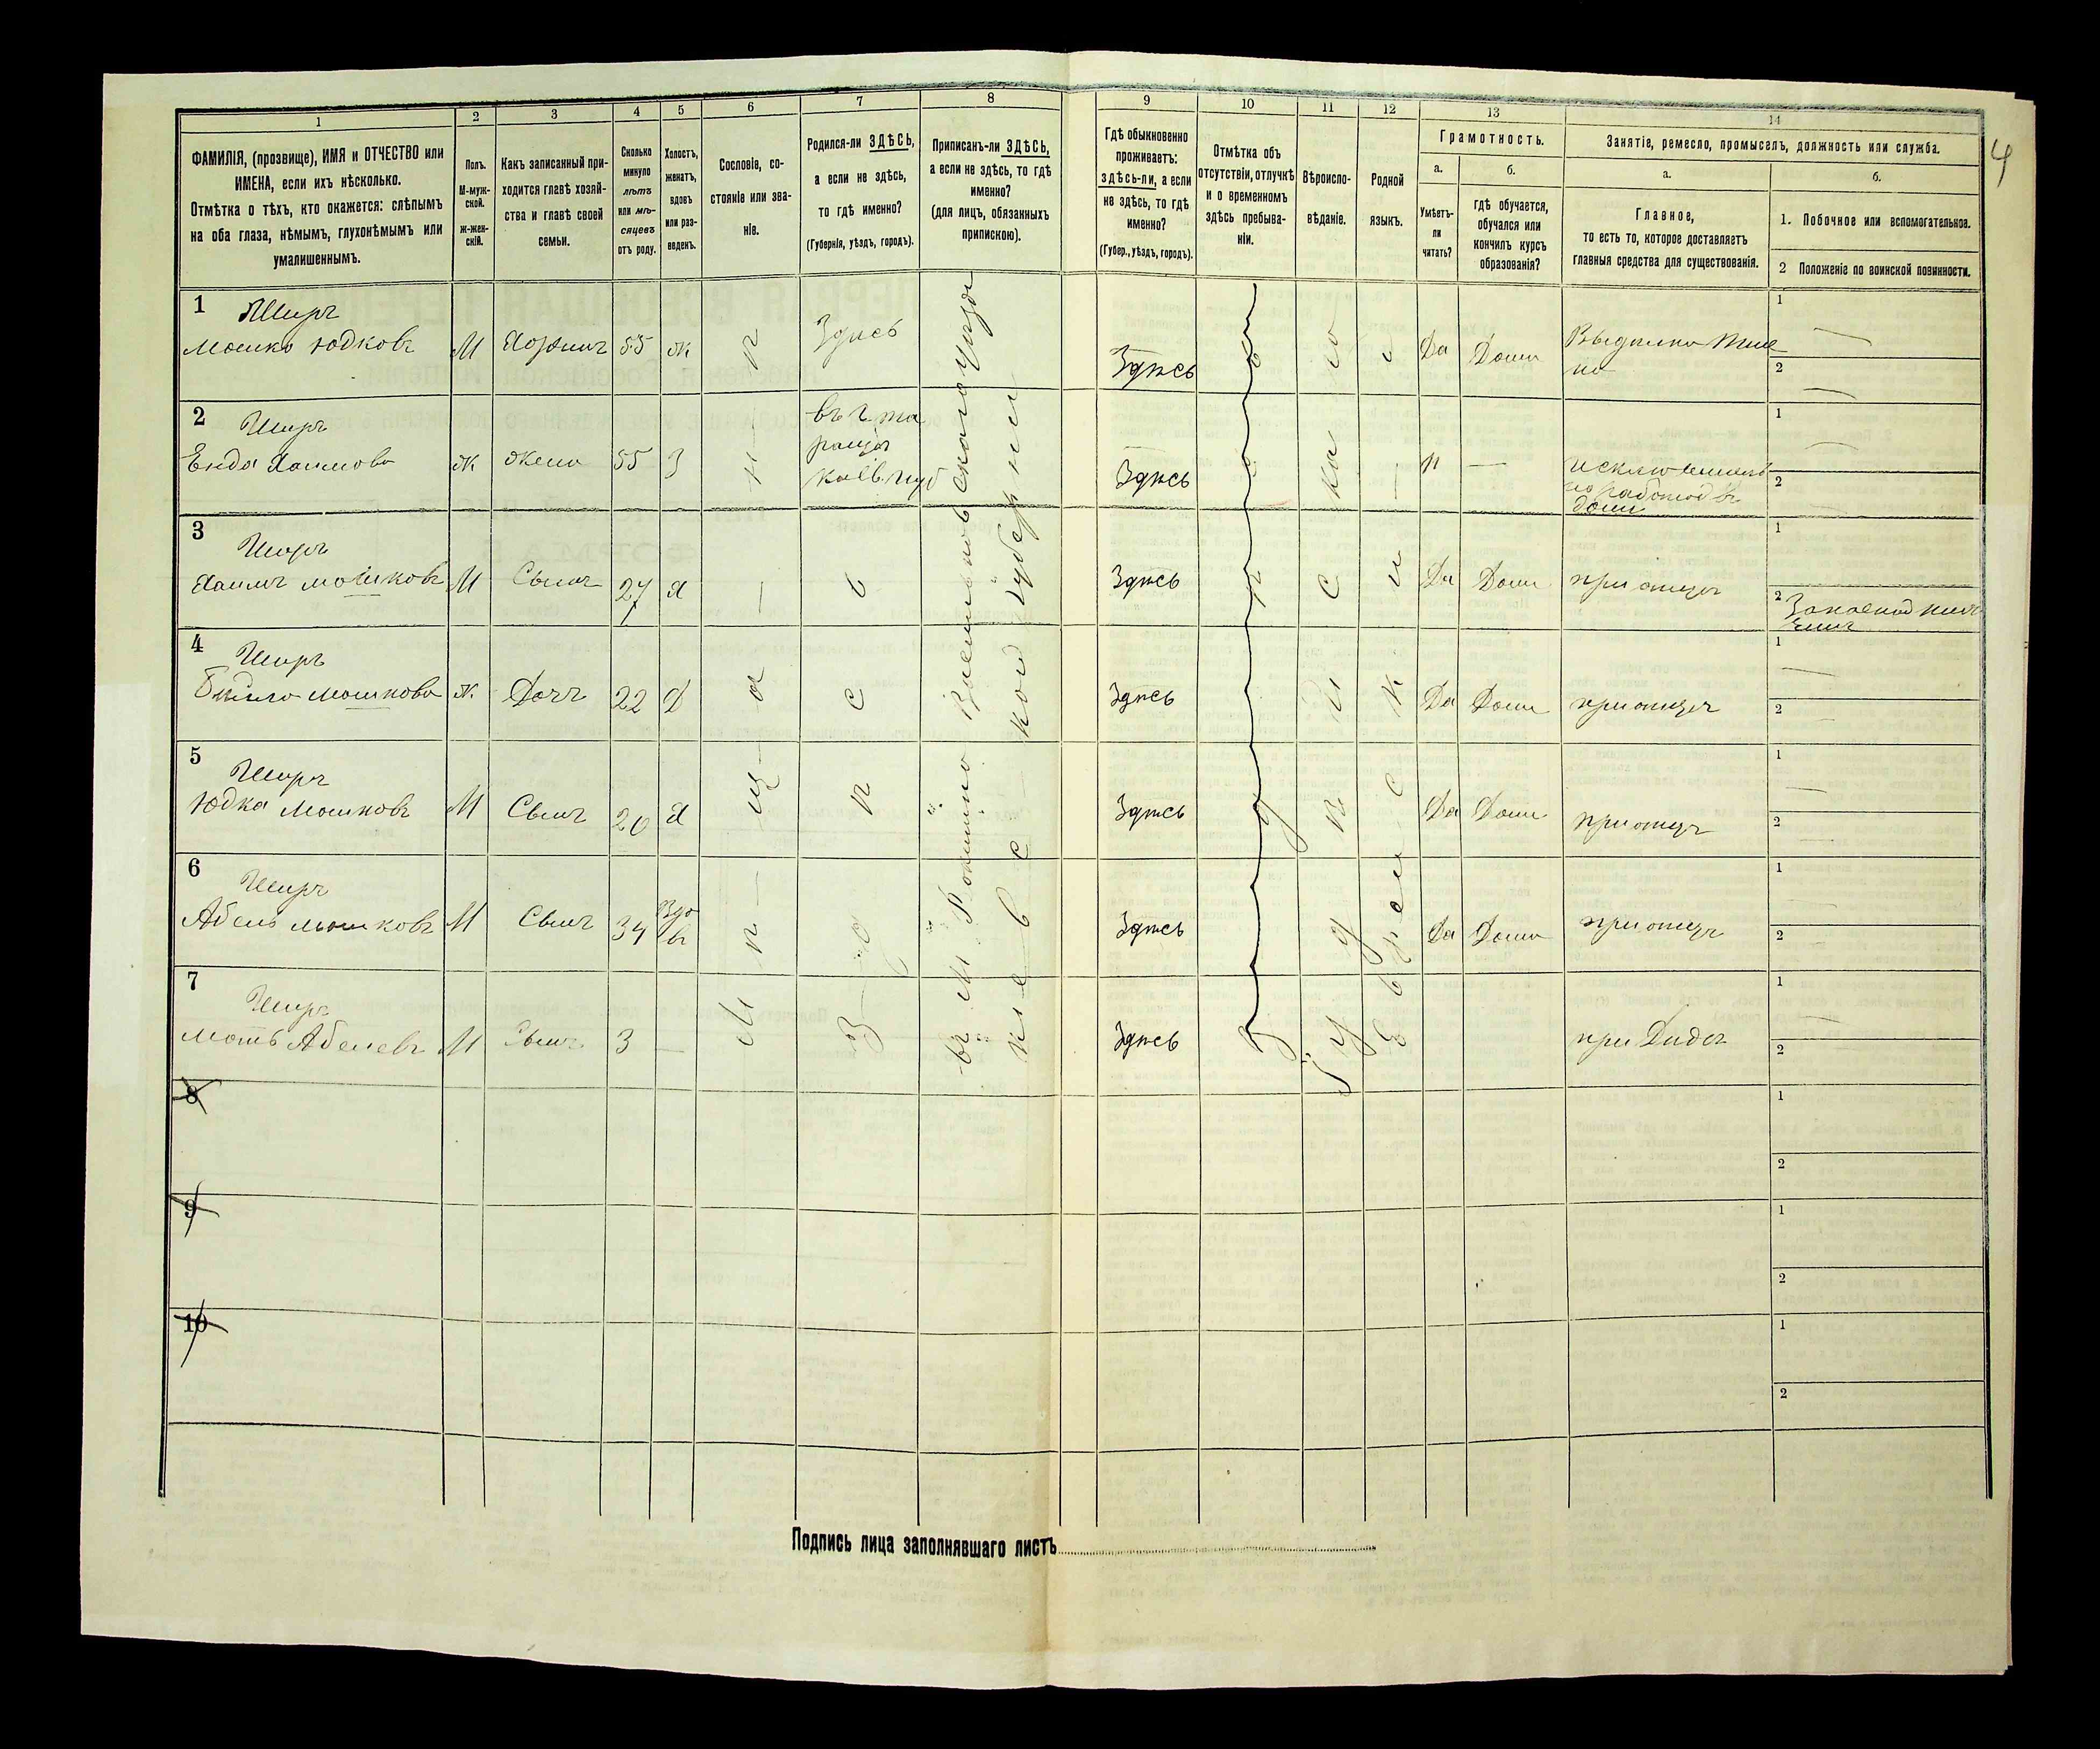 1
2
3
4
5
6
7
8
9
10
11
12
13
14
4
ФАМИЛІЯ, (прозвище), ИМЯ и ОТЧЕСТВО или
ИМЕНА, если ихъ нѣсколько.
Отмѣтка о тѣхъ, кто окажется: слѣпымъ
на оба глаза, нѣмымъ, глухонѣмымъ или
умалишеннымъ.
Полъ.
М-муж-
ской.
Ж-жен-
скій.
Какъ записанный при-
ходится главѣ хозяй-
ства и главѣ своей
семьи.
Сколько
минуло
лѣтъ
или мѣ-
сяцевъ
отъ роду.
Холостъ,
женатъ,
вдовъ
или раз-
веденъ.
Сословіе, со-
стояніе или зва-
ніе.
Родился-ли ЗДѢСЬ,
а если не здѣсь,
то гдѣ именно?
(Губернія, уѣздъ, городъ).
Приписанъ-ли ЗДѢСЬ,
а если не здѣсь, то гдѣ
именно?
(для лицъ, обязанныхъ
припискою).
Гдѣ обыкновенно
проживаетъ:
здѣсь-ли, а если
не здѣсь, то гдѣ
именно?
(Губер., уѣздъ, городъ).
Отмѣтка объ
отсутствіи, отлучкѣ
и о временномъ
здѣсь пребыва-
ніи.
Вѣроиспо-
вѣданіе.
Родной
языкъ.
Грамотность.
а.
Умѣетъ-
ли
читать?
б.
гдѣ обучается,
обучался или
кончилъ курсъ
образованія?
Занятіе, ремесло, промыселъ, должность или служба.
а.
Главное,
то есть то, которое доставляетъ
главныя средства для существованія.
б.
1. Побочное или вспомогательное.
2 Положеніе по воинской повинности.
1
Ширъ
Мошко Юдковъ
М
Хозяинъ
55
ж
Здѣсь
Здѣсь
Да
Дома
1
2
2
Ширъ
Енда Хаимова
Ж
Жена
55
З
Кіев. губ
Здѣсь
н
—
1
2
3
Ширъ
Хаимъ Мошковъ
М
Сынъ
27
Х
Здѣсь
Да
Дома
при отцѣ
1
2
4
Ширъ
Мошкова
Ж
Дочь
22
Д
Здѣсь
Да
Дома
при отцѣ
1
2
5
Ширъ
Юдка Мошковъ
М
Сынъ
20
Х
Здѣсь
Да
Дома
при отцѣ
1
2
6
Ширъ
Абель Мошковъ
М
Сынъ
34
Вдовъ
Здѣсь
Да
Дома
при отцѣ
1
2
7
Ширъ
Моть Абелевъ
М
Сынъ
3
—
Здѣсь
при Дидѣ
1
2
Мѣщанинъ
Здѣсь
въ м. Рокитно Васильковскаго уѣзда
Кіевской губерніи
Іудейское
еврейскій
8
1
2
9
1
2
10
1
2
Подпись лица заполнявшаго листъ